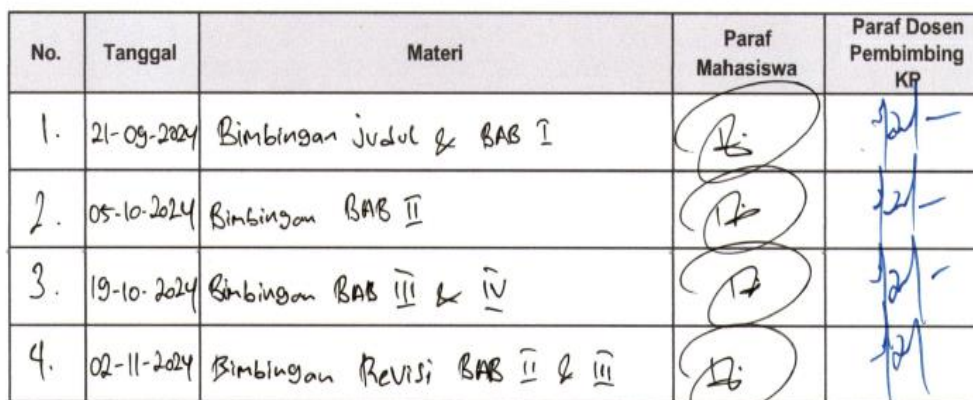 No. Tanggal Materi Paraf Mahasiswa Paraf Dosen Pembimbing KP
1. 21-09-2024 Bimbingan judul & BAB I
2. 05-10-2024 Bimbingan BAB II
3. 19-10-2024 Bimbingan BAB III & IV
4. 02-11-2024 Bimbingan Revisi BAB II & III